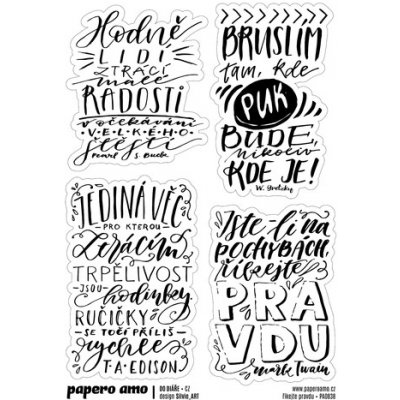 Hodně
LIDÍ
ZTRÁCÍ
malé
RADOSTI
v očekávání
VELKÉHO
štěstí
Pearl S. Buck
BRUSLÍM
tam, kde
PUK
BUDE,
nikoliv
KDE JE!
W. Gretzky
JEDINÁ VĚC
PRO KTEROU
ztrácím
TRPĚLIVOST
JSOU
hodinky
RUČIČKY
SE TOČÍ PŘÍLIŠ
rychle
T.A. EDISON
Jste-li na
POCHYBÁCH,
říkejte
PRA
VDU
Mark Twain
papero amo
DO DIÁŘE • CZ
design Silvie_ART
www.paperoamo.cz
Říkejte pravdu • PA0838